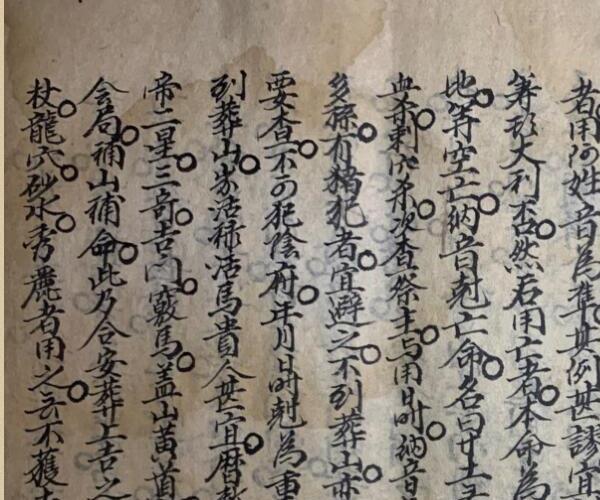 者用何姓音為準其例甚謬宜
等項大利否然若用亡者本命為
此等空亡納音尅亡命名曰廿土
血刃刺穴殺次查祭主与用時納音
多疎有猪犯者宜避之不到葬山亦
要查不可犯陰府年月時尅為重
到葬山家活祿活馬貴人甚宜曆數
帝二星三奇吉門竅馬盖山黃道
會局補山補命此乃合安葬上吉之
杖龍穴砂水秀麗者用之云不獲吉